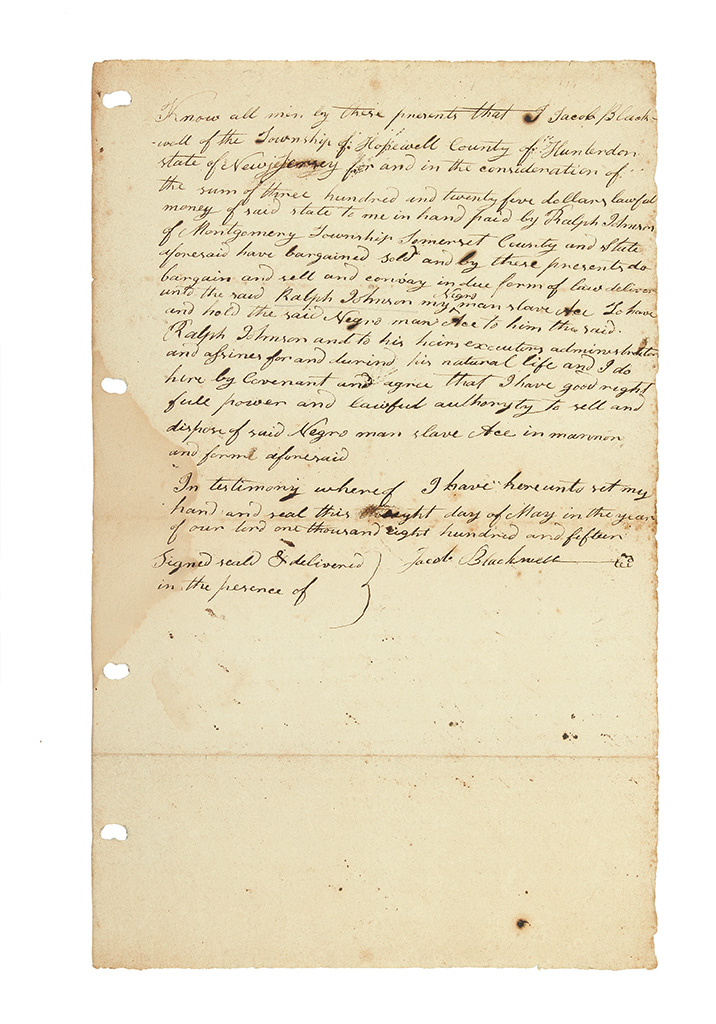 Know all men by these presents that I Jacob Black-
-well of the Township of Hopewell County of Hunterdon
state of Newjersey for and in the consideration of
the sum of three hundred and twenty five dollars lawful
money of said state to me in hand paid by Ralph Johnson
of Montgomery Township Somerset County and State
aforesaid have bargained sold and by these presents do
bargain and sell and convay in due form of law deliver
unto the said Ralph Johnson my Negro man slave Ace To have
and hold the said Negro man Ace to him the said
Ralph Johnson and to his heirs executors administrators
and assines for and during his natural life and I do
here by Covenant and agree that I have good right
full power and lawful authoryty to sell and
dispose of said Negro man slave Ace in mannor
and forme aforesaid
In testimony whereof I have hereunto set my
hand and seal this eight day of May in the year
of our lord one thousand eight hundred and fifteen
Signed seald & delivered
in the presence of
Jacob Blackwell